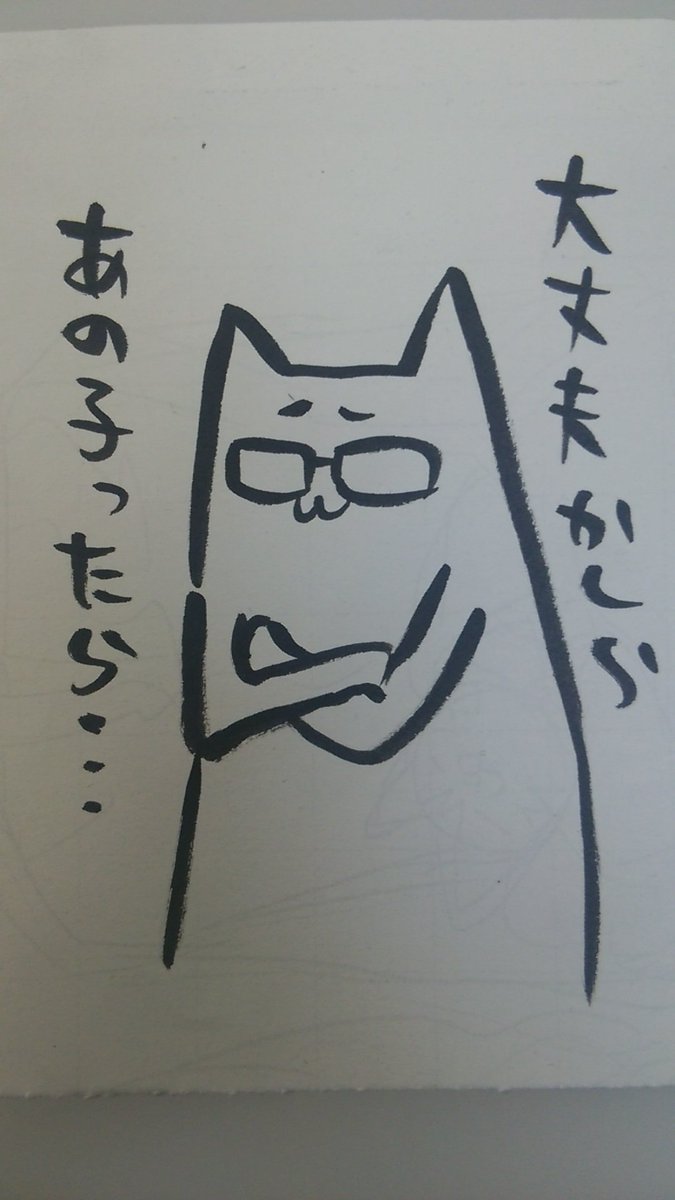 大丈夫かしら
あの子ったら...